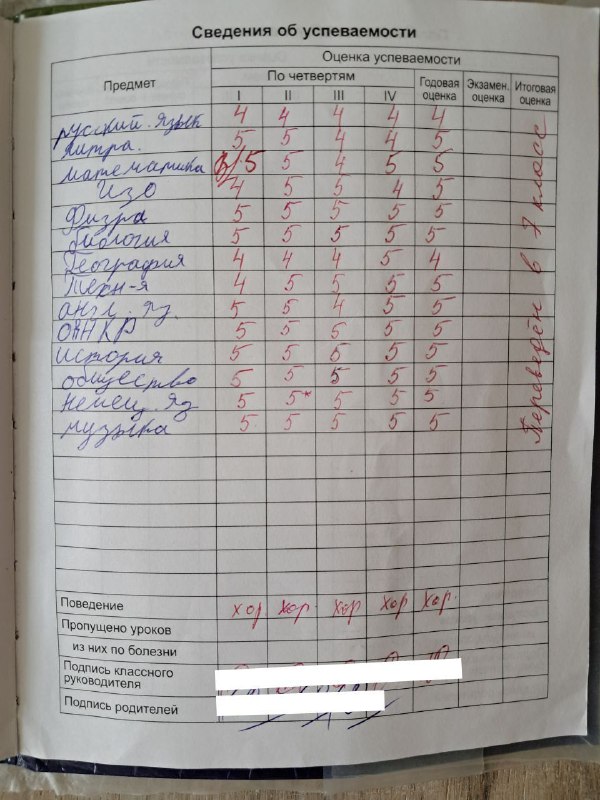 Сведения об успеваемости
Предмет
Оценка успеваемости
По четвертям
Годовая оценка
Экзамен. оценка
Итоговая оценка
I II III IV
русский. язык 4 4 4 4 4
литра. 5 5 4 4 5
математика 5 5 4 5 5
ИЗО 4 5 5 4 5
Физра 5 5 5 5 5
биология 5 5 5 5 5
География 4 4 4 5 4
Техн-я 4 5 5 5 5
англ. яз. 5 5 4 5 5
ОДНКР 5 5 5 5 5
история 5 5 5 5 5
общество 5 5 5 5 5
немец. яз 5 5* 5 5 5
музыка 5 5 5 5 5
Переведён в 7 класс
Поведение хор хор. хор хор хор.
Пропущено уроков
из них по болезни
Подпись классного
руководителя
Подпись родителей